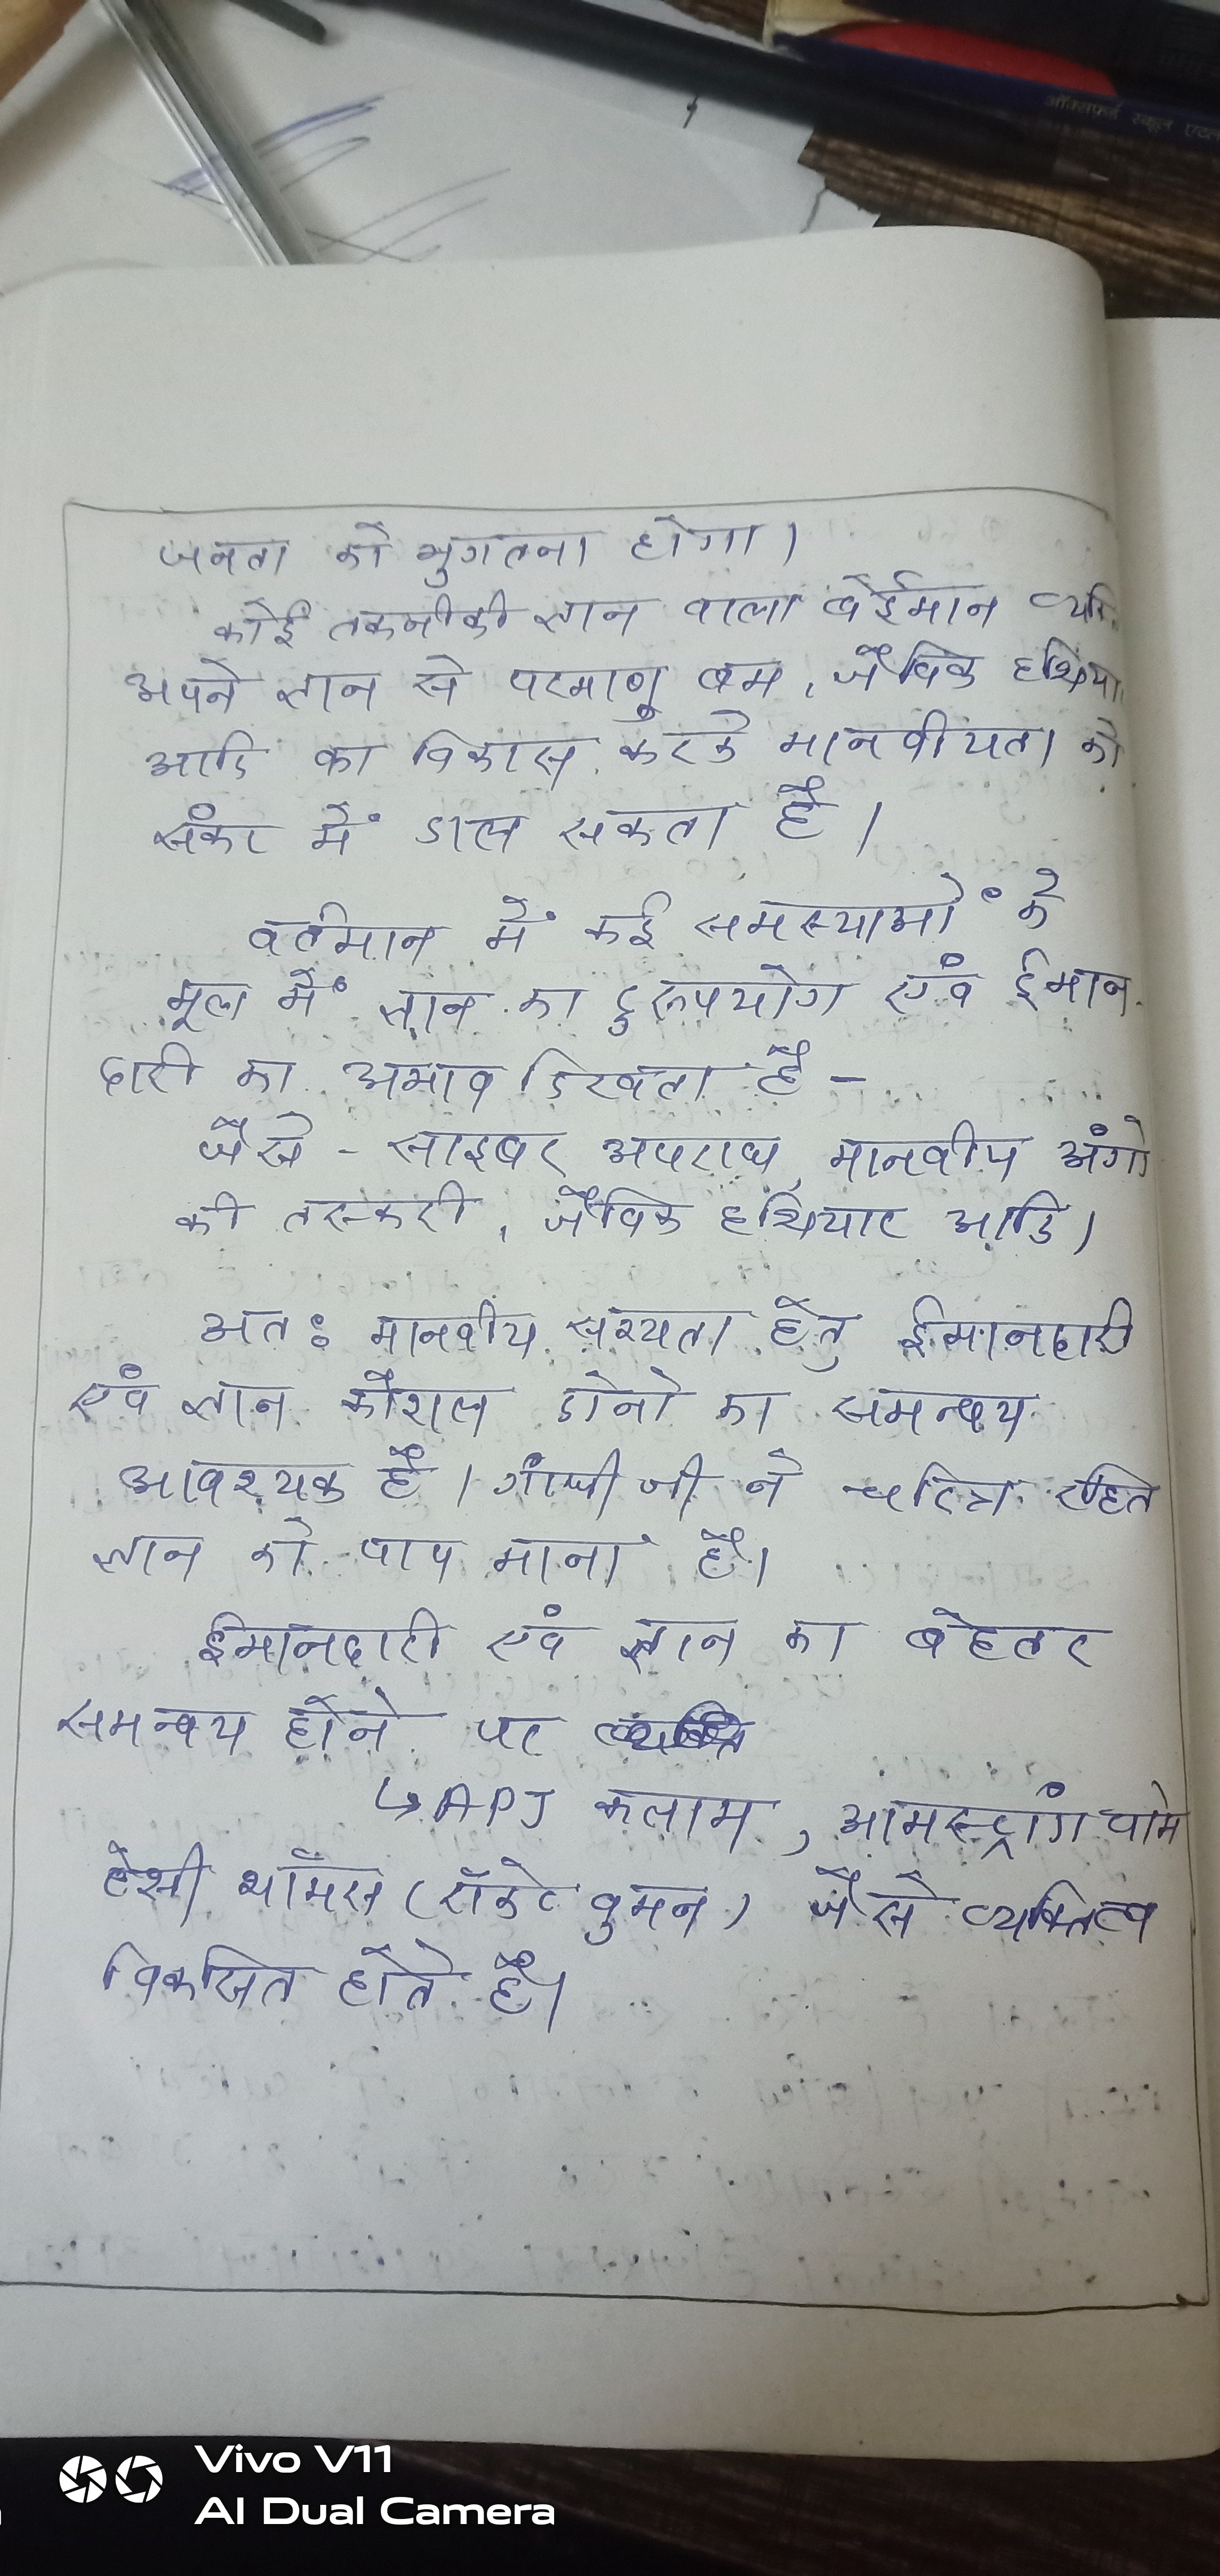 ऑक्सफ़र्ड स्कूल एटल
जनता को भुगतना होगा।
कोई तकनीकी ज्ञान वाला बेईमान
अपने ज्ञान से परमाणु बम, जैविक हथिया
आदि का विकास करके मानवीयता को
में डाल सकता है।
वर्तमान में कई समस्याओं के
मूल में ज्ञान का दुरूपयोग एवं ईमान
दारी का अभाव दिखता है -
जैसे - साइबर अपराध, मानवीय अंगो
की तस्करी, जैविक हथियार आदि।
अतः मानवीय सभ्यता हेतु ईमानदारी
एवं ज्ञान कौशल दोनो का समन्वय
आवश्यक है। गाँधी जी ने चरित्र रहित
ज्ञान को पाप माना है।
ईमानदारी एवं ज्ञान का बेहतर
समन्वय होने पर
↳ APJ कलाम, आमस्ट्रांग पामे
टेसी थॉमस (रॉकेट वुमन) जैसे व्यक्तित्व
विकसित होते है।
Vivo V11
AI Dual Camera